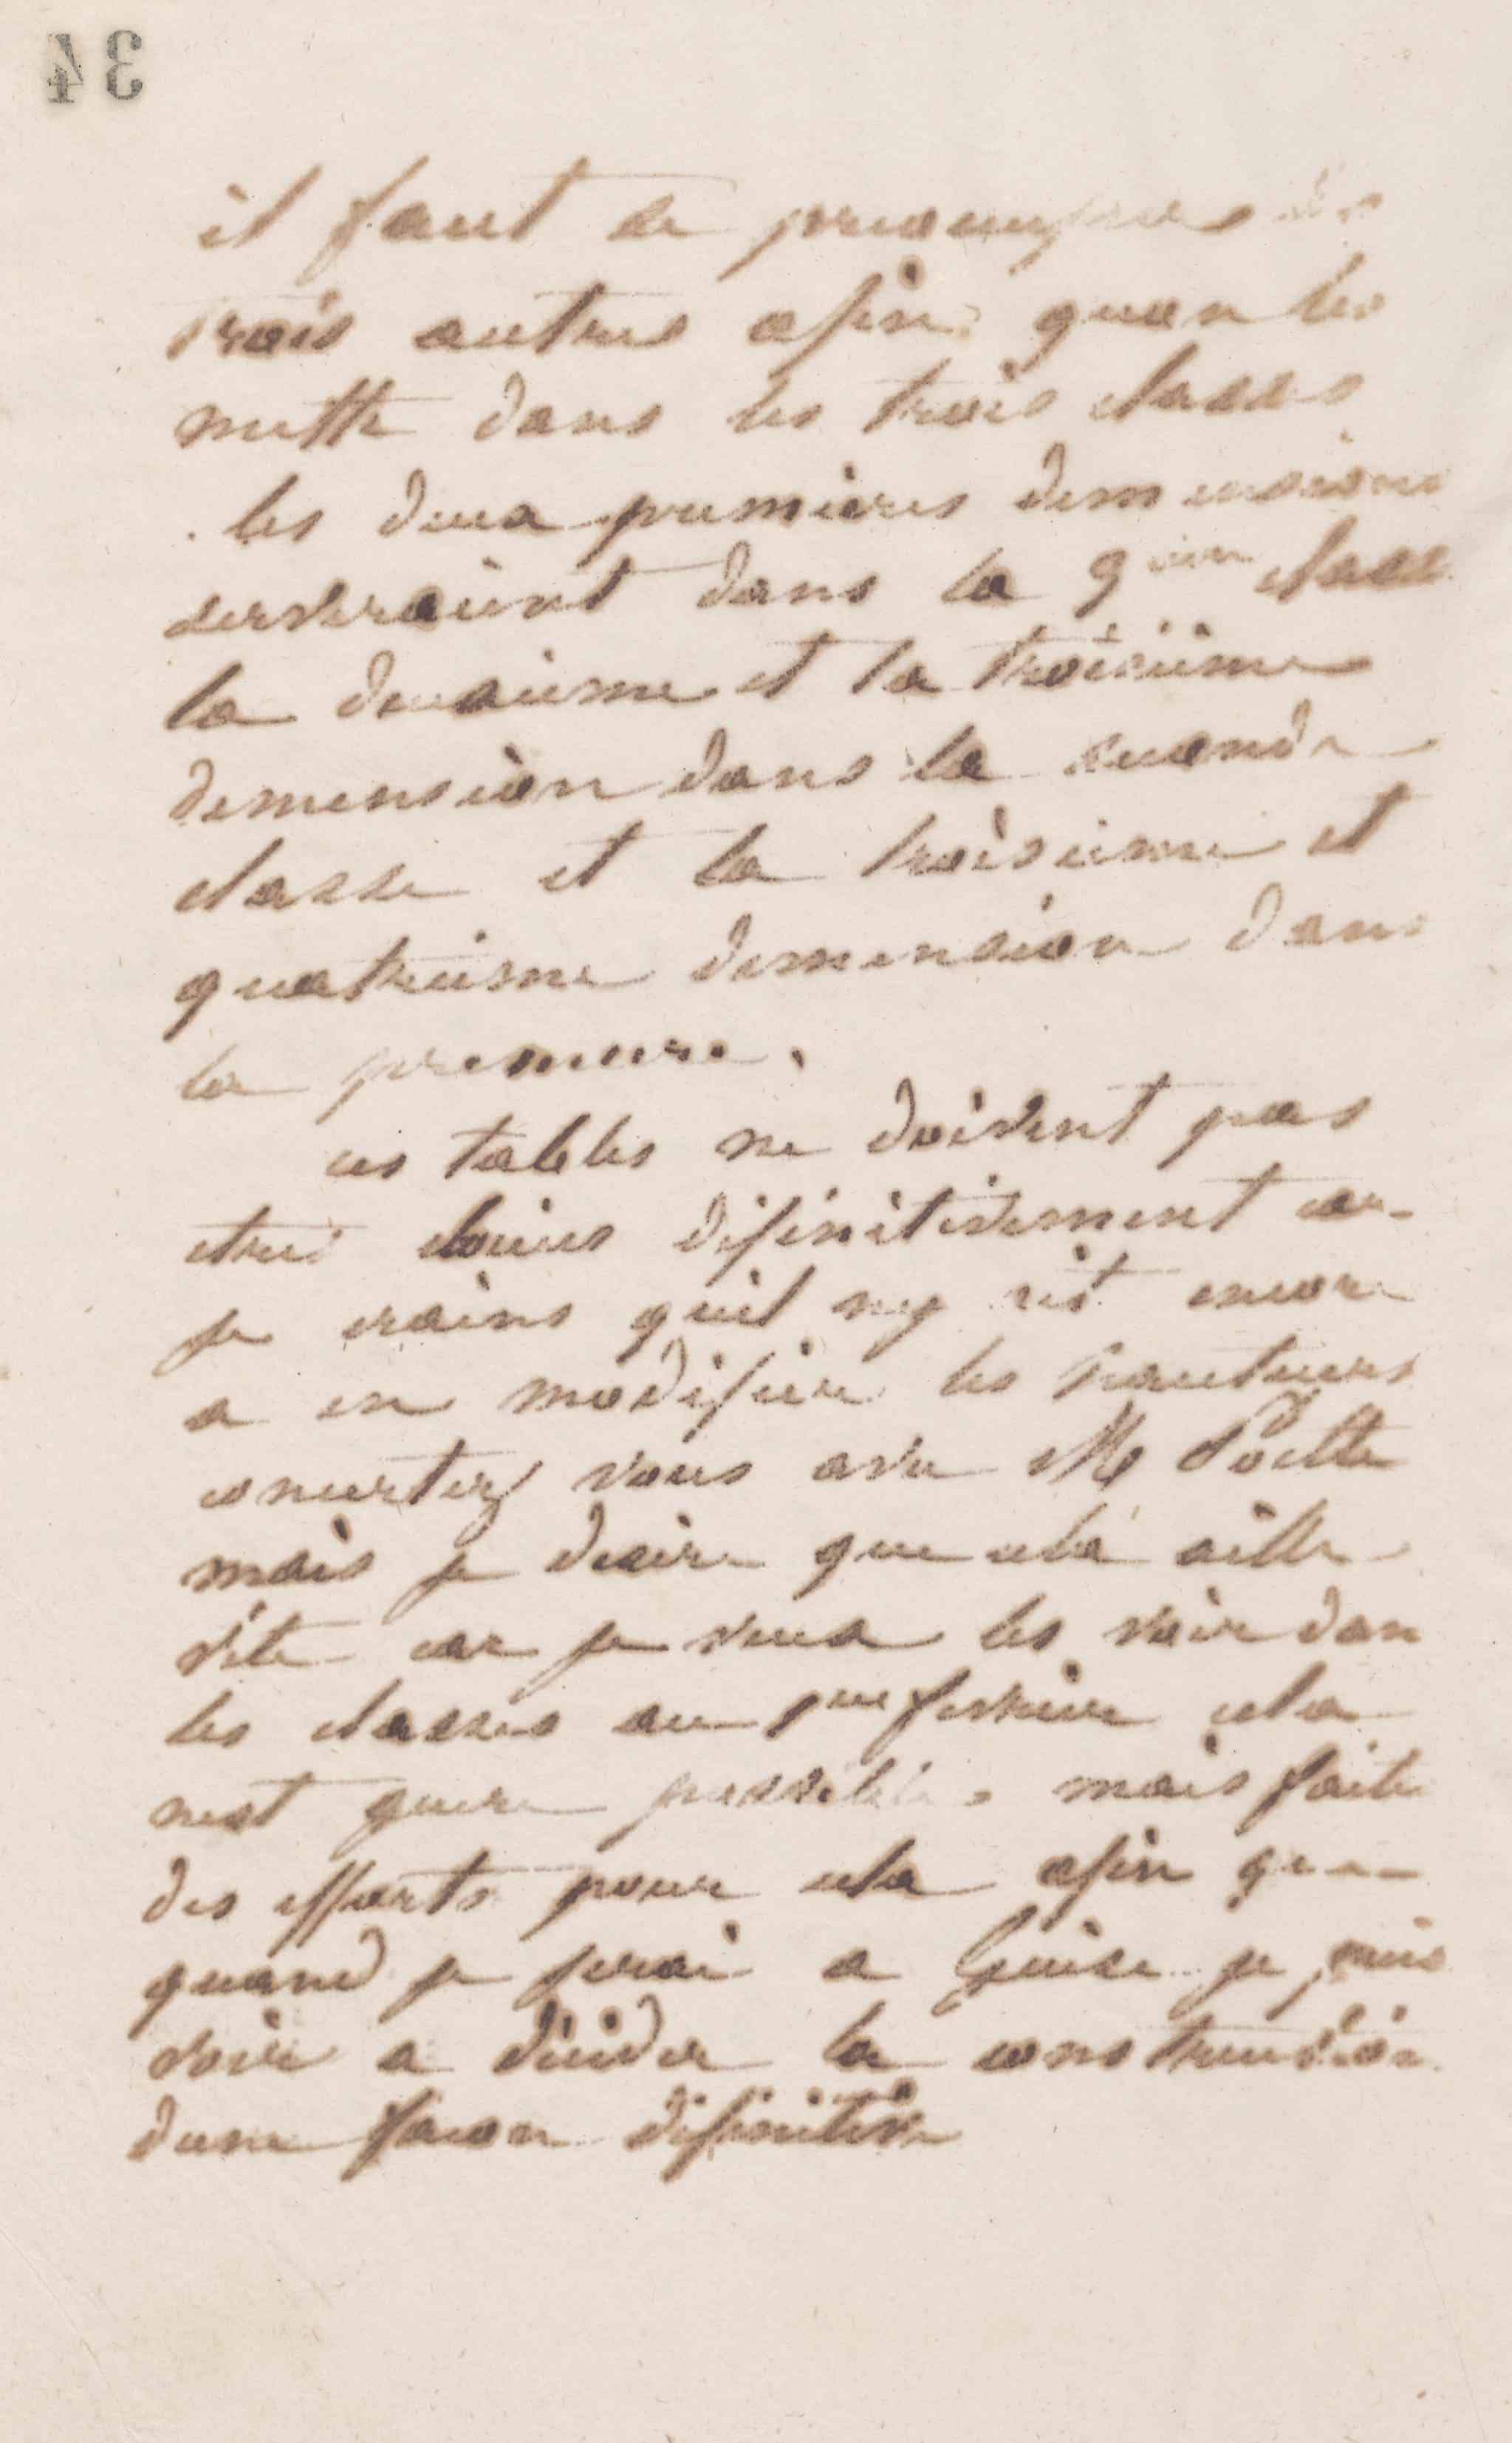 34
il faut se preoccuper des
trois autres afin quon les
mette dans les trois classes
les deux premieres demensions
serviraient dans la 3eme classe
la deuxieme et la troisieme
demension dans la seconde
classe et la troisieme et
quatrieme demension dans
la premiere.
ces tables ne doivent pas
etre definitivement car
je crains quil ny ait encore
a en modifier les hauteurs
concertez vous avec M
mais je desire que cela aille
vite car je veux les voir dans
les classes au 1er fevrier cela
nest guere possible mais faite
des efforts pour cela afin que
quand je serai a Guise je puis
voir a decider la construction
dune facon definitive